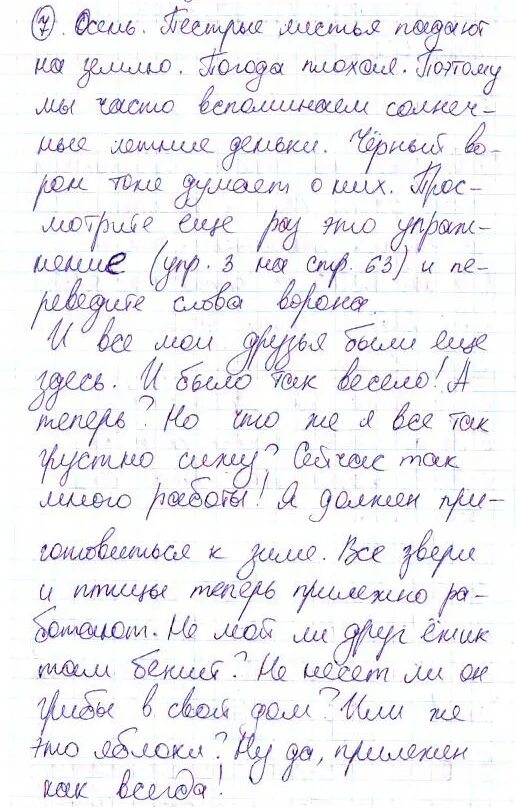 7. Осень. Пестрые листья падают
на землю. Погода плохая. Поэтому
мы часто вспоминаем солнеч-
ные летние деньки. Чёрный во-
рон тоже думает о них. Прос-
мотрите еще раз это упраж-
нение (упр. 3 на стр. 63) и пе-
реведите слова ворона.
И все мои друзья были еще
здесь. И было так весело! А
теперь? Но что же я все так
грустно сижу? Сейчас так
много работы! Я должен при-
готовиться к зиме. Все звери
и птицы теперь прилежно ра-
ботают. Не мой ли друг ёжик
там бежит? Не несет ли он
грибы в свой дом? Или же
это яблоки? Ну да, прилежен
как всегда!